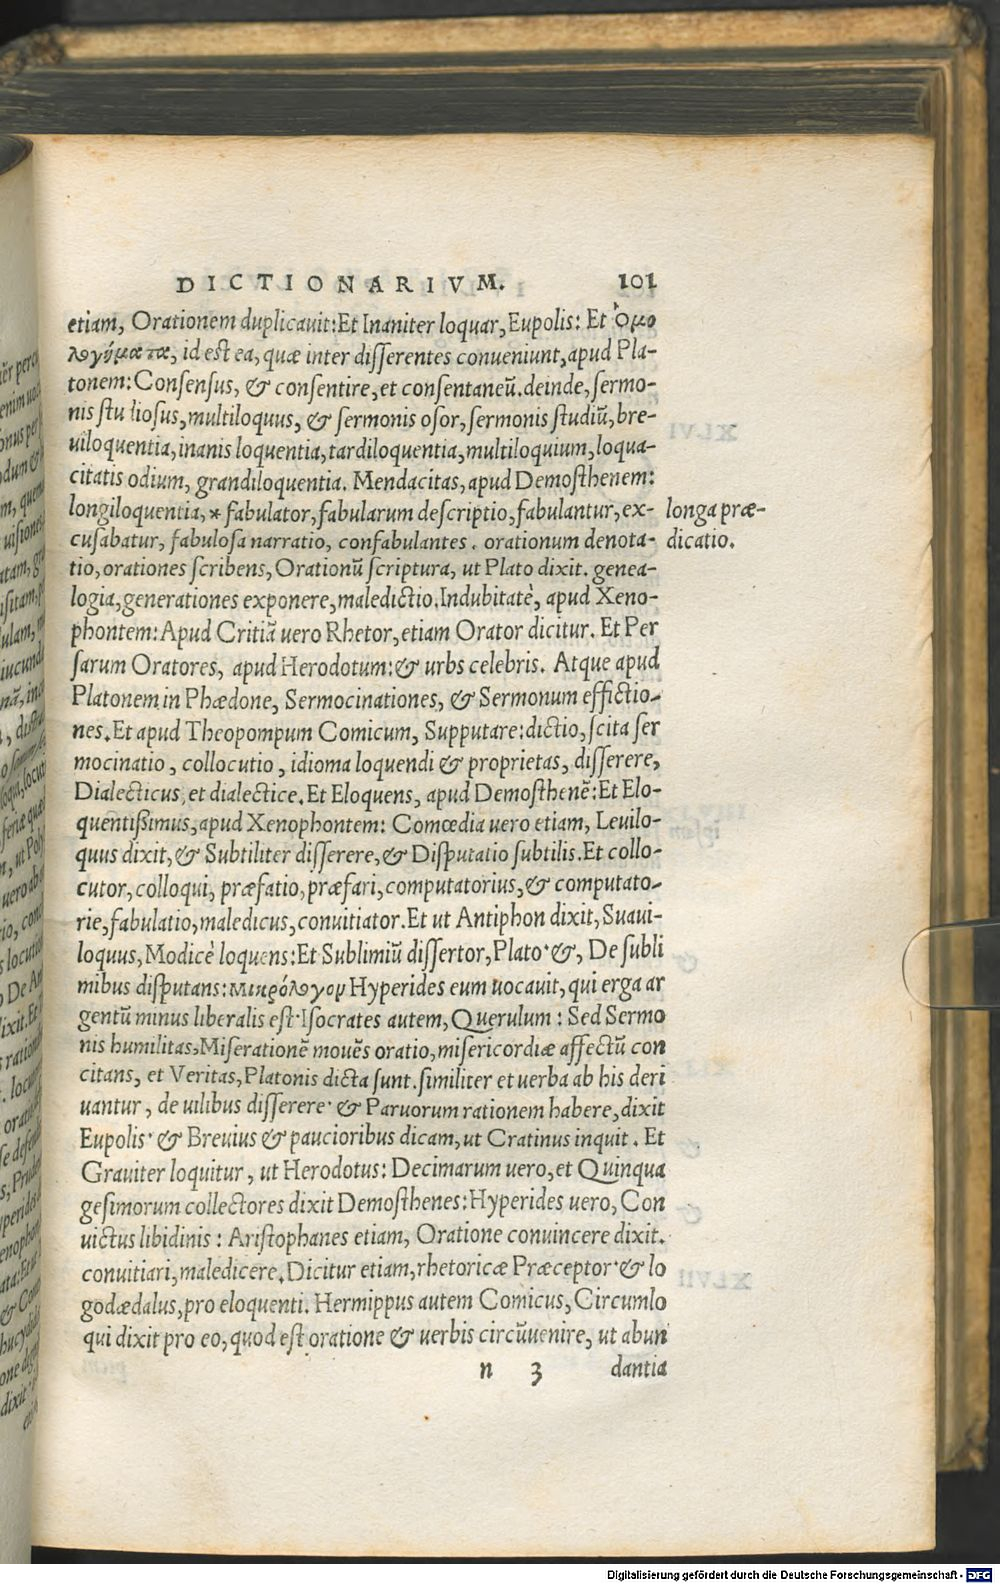 DICTIONARIVM. 101
etiam, Orationem duplicauit: Et Inaniter loquar, Eupolis: Et Ὁμο
λογήματα, id est ea, quæ inter disserentes conueniunt, apud Pla-
tonem: Consensus, & consentire, et consentaneũ. deinde, sermo-
nis studiosus, multiloquus, & sermonis osor, sermonis studiũ, bre-
uiloquentia, inanis loquentia, tardiloquentia, multiloquium, loqua-
citatis odium, grandiloquentia. Mendacitas, apud Demosthenem:
longiloquentia, * fabulator, fabularum descriptio, fabulantur, ex-
longa præ-
cusabatur, fabulosa narratio, confabulantes. orationum denota-
dicatio.
tio, orationes scribens, Orationũ scriptura, ut Plato dixit. genea-
logia, generationes exponere, maledictio. Indubitatè, apud Xeno-
phontem: Apud Critiã uero Rhetor, etiam Orator dicitur. Et Per
sarum Oratores, apud Herodotum: & urbs celebris. Atque apud
Platonem in Phædone, Sermocinationes, & Sermonum effictio-
nes. Et apud Theopompum Comicum, Supputare: dictio, scita ser
mocinatio, collocutio, idioma loquendi & proprietas, disserere,
Dialecticus, et dialectice. Et Eloquens, apud Demosthenẽ: Et Elo-
quentißimus, apud Xenophontem: Comœdia uero etiam, Leuilo-
quus dixit, & Subtiliter disserere, & Disputatio subtilis. Et collo-
cutor, colloqui, præfatio, præfari, computatorius, & computato-
rie, fabulatio, maledicus, conuitiator. Et ut Antiphon dixit, Suaui-
loquus, Modicè loquens: Et Sublimiũ dissertor, Plato· &, De subli
mibus disputans: μικρόλογον Hyperides eum uocauit, qui erga ar
gentũ minus liberalis est· Isocrates autem, Querulum: Sed Sermo
nis humilitas, Miserationẽ mouẽs oratio, misericordiæ affectũ con
citans, et Veritas, Platonis dicta sunt. similiter et uerba ab his deri
uantur, de uilibus disserere· & Paruorum rationem habere, dixit
Eupolis· & Breuius & paucioribus dicam, ut Cratinus inquit. Et
Grauiter loquitur, ut Herodotus: Decimarum uero, et Quinqua
gesimorum collectores dixit Demosthenes: Hyperides uero, Con
uictus libidinis: Aristophanes etiam, Oratione conuincere dixit.
conuitiari, maledicere. Dicitur etiam, rhetoricæ Præceptor· & lo
godædalus, pro eloquenti. Hermippus autem Comicus, Circumlo
qui dixit pro eo, quod est oratione & uerbis circũuenire, ut abun
n 3 dantia
Digitalisierung gefördert durch die Deutsche Forschungsgemeinschaft - DFG